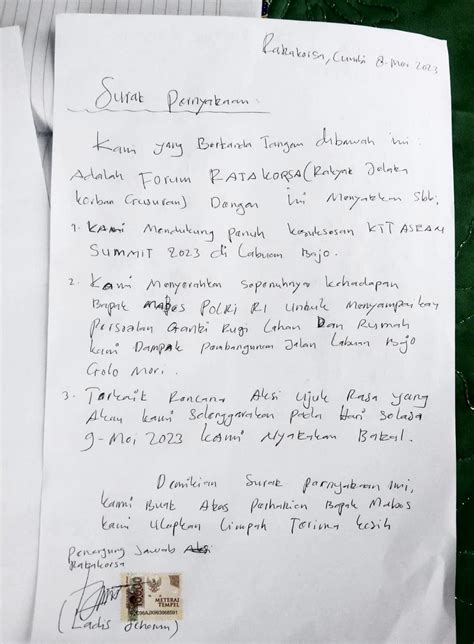 Ratakorsa, Cumbi 8-Mei 2023
Surat Pernyataan:
Kami yang Bertanda Tangan dibawah ini.
Adalah Forum RATAKORSA (Rakyat Jelata
korban Gusuran) Dengan ini Menyatakan Sbb;
1. KAMI Mendukung penuh kesuksesan KTT ASEAN
SUMMIT 2023 di Labuan Bajo.
2. Kami Menyerahkan Sepenuhnya kehadapan
Bapak Mabes POLRI RI Untuk Menyampaikan
Persoalan Ganti Rugi Lahan Dan Rumah
kami Dampak Pembangunan Jalan Labuan Bajo
Golo Mori.
3. Terkait Rencana Aksi Ujuk Rasa yang
Akan kami Selenggarakan pada Hari Selasa
9-Mei 2023 KAMI Nyatakan Batal.
Demikian Surat pernyataan ini,
kami Buat Atas Perhatian Bapak Mabes
kami Ucapkan Limpah Terima kasih
Penangung Jawab Aksi
Ratakorsa
10000
METERAI
TEMPEL
(Ladis